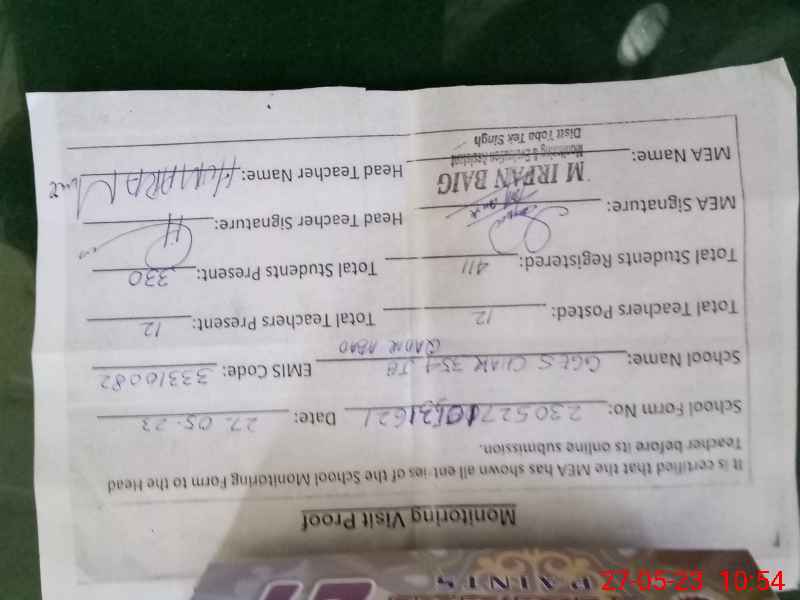 Monitoring Visit Proof
It is certified that the MEA has shown all entries of the School Monitoring Form to the Head
Teacher before its online submission.
School Form No: Date: 27-05-23
School Name: GGES CHAK 354 JB QADIR ABAD EMIS Code: 33310082
Total Teachers Posted: 12 Total Teachers Present: 12
Total Students Registered: 411 Total Students Present: 330
MEA Signature: Head Teacher Signature:
MEA Name: M IRFAN BAIG Head Teacher Name: HUMARA
Monitoring & Evaluation Assistant
Distt Toba Tek Singh
PAINTS
27-05-23 10:54